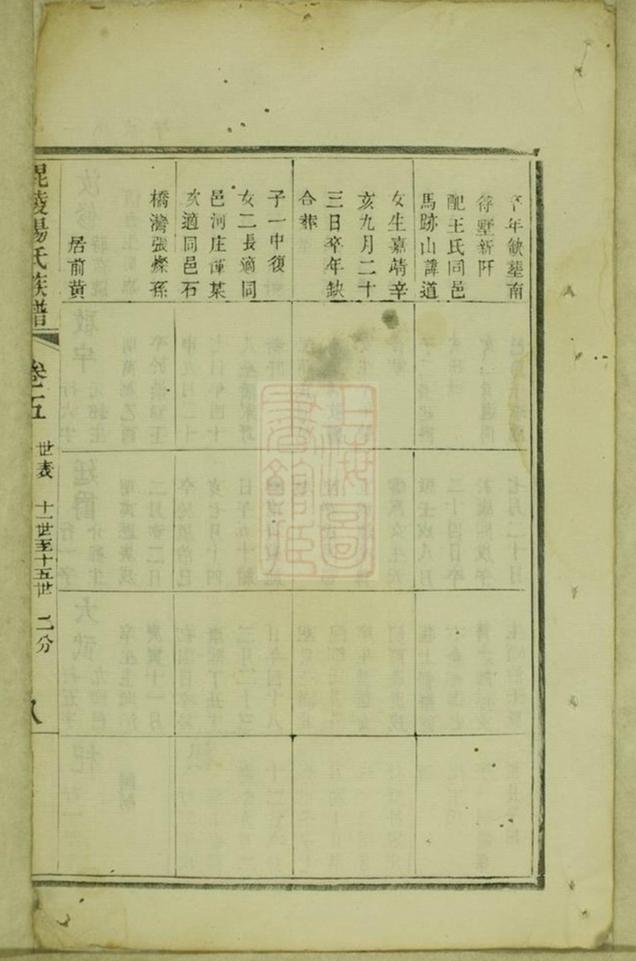 卒年缺葬南
符墅新阡
配王氏同邑
馬跡山諱道
女生嘉靖辛
亥九月二十
三日卒年缺
合葬
子一中復
女二長適同
邑河庄謹某
次適同邑石
橋灣張燦孫
居前黄
毘陵楊氏族譜
卷五
世表 十一世至十五世 二分
八